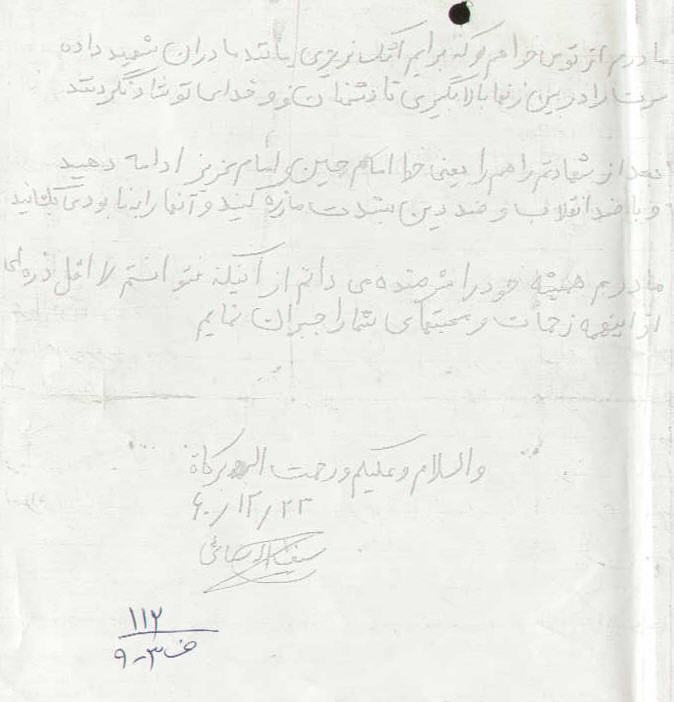 مادرم از تو می خواهم که برایم اشک نریزی مانند مادران شهید داده
سرت را در بین زنها بالا بگیری تا دشمنان و خدای تو شاد نگردند
بعد از شهادتم راهم را یعنی خط امام حسین و امام عزیز ادامه دهید
و با ضد انقلاب و ضد دین بشدت مبارزه کنید و آنها را به نابودی بکشانید
مادرم همیشه خود را شرمنده می دانم از اینکه نتوانستم لااقل ذره ای
از اینهمه زحمات و محبتهای شما را جبران نمایم
والسلام و علیکم و رحمت الله برکاة
۶۰/۱۲/۲۳
۱۱۲
ف ۳-۹